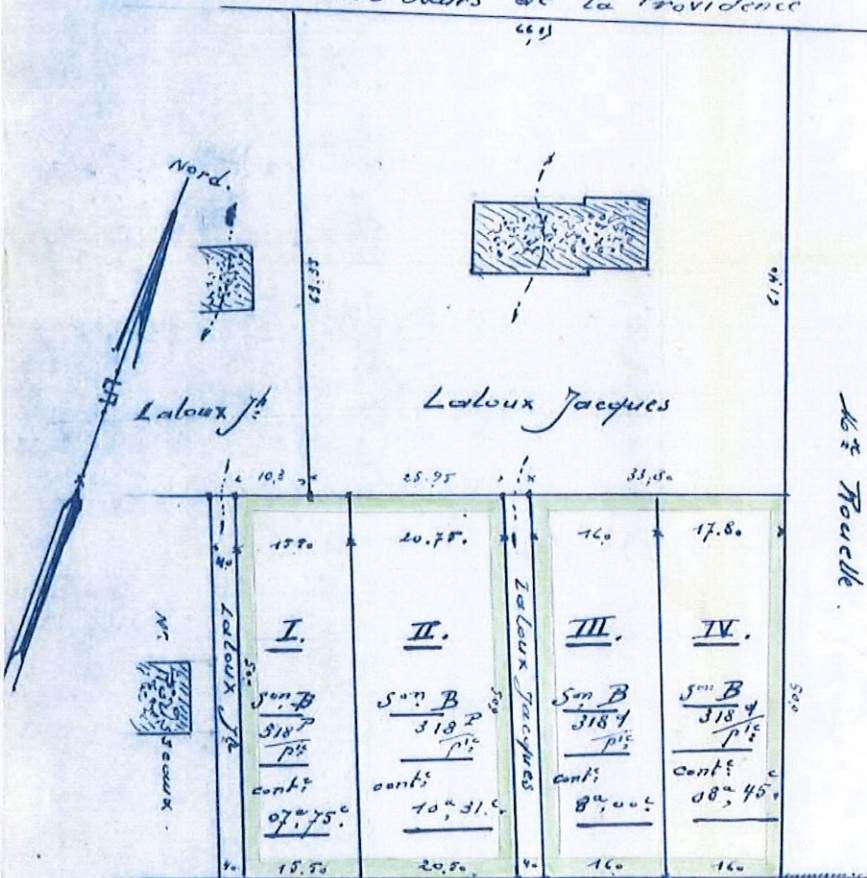 de la Providence
66,13
Nord.
69.55
Laloux Jh
Laloux Jacques
10,3
25.95
33,80
15.50
20.75.
16,0
17.80
Laloux Jh
50,0
Laloux Jacques
50,0
50,0
Rouelle.
I.
Son B
318 P
pie
contce
07a,75c.
II.
Son B
318 P
pie
contce
10a,31c.
III.
Son B
318 q
pie
contce
8a,00c
IV.
Son B
318 q
pie
contce
08a,45c
40
15.50
20,50
40
16,0
16,0